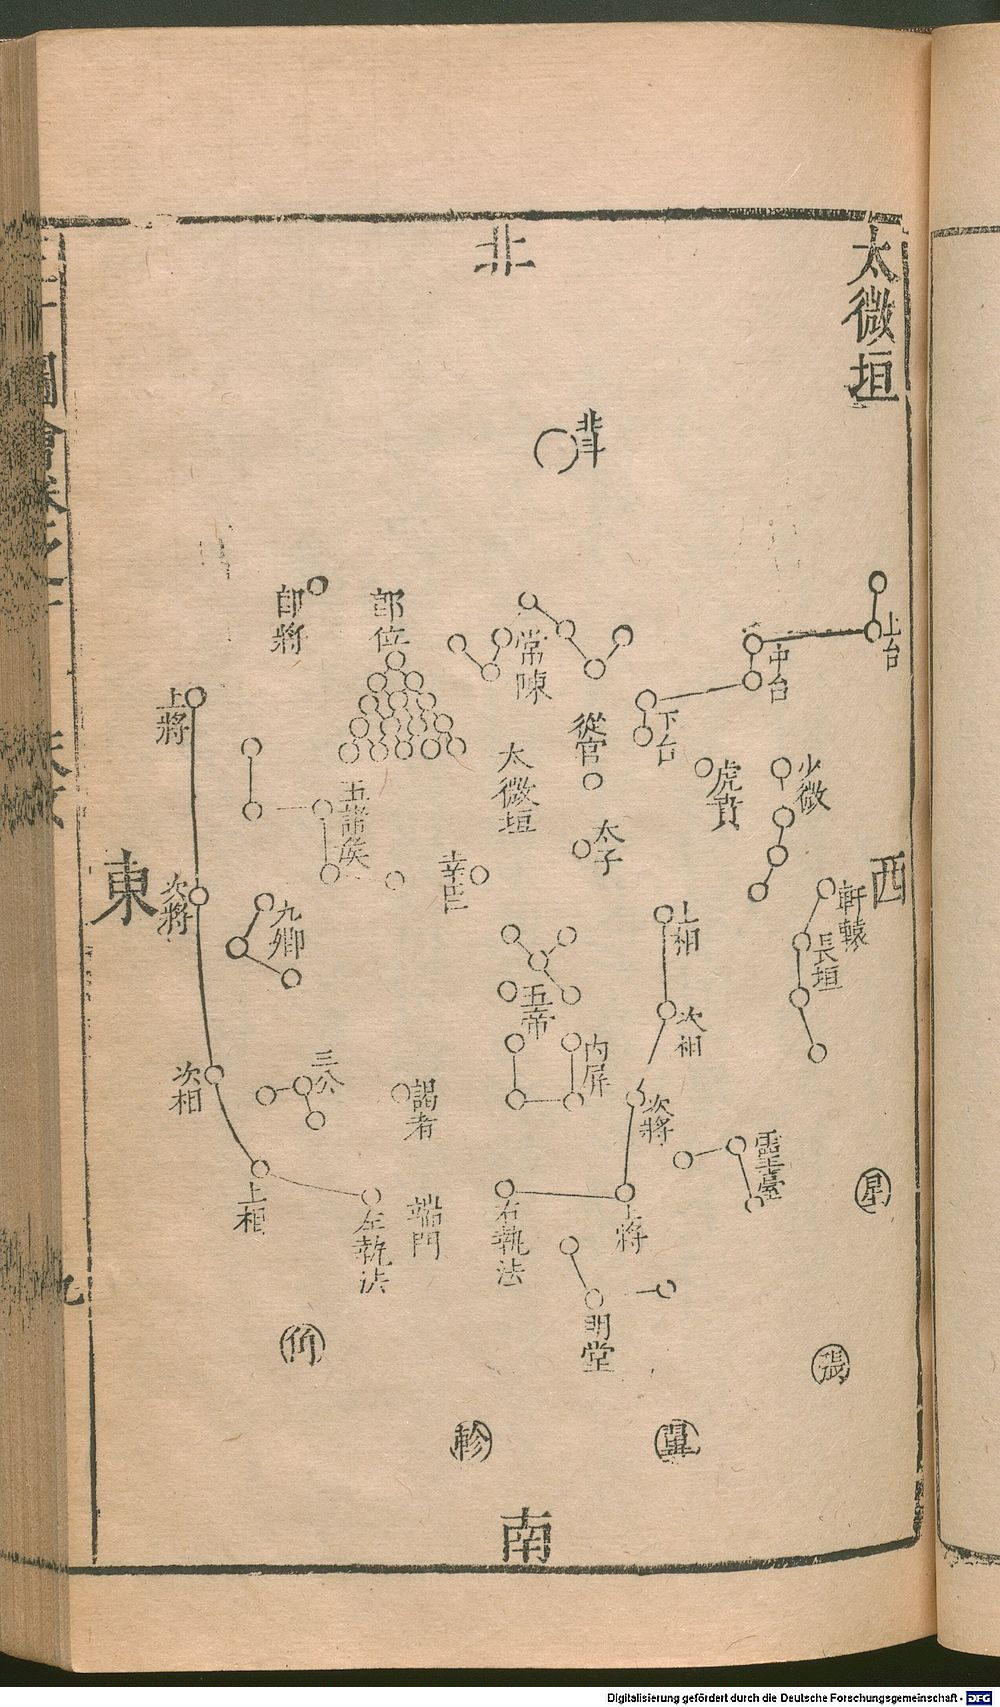 太微垣
北
上台
中台
下台
常陳
郎位
郎將
上將
少微
虎賁
從官
太微垣
五諸矦
太子
幸臣
西
東
軒轅
長垣
上相
次將
九卿
五帝
次相
內屏
三公
謁者
次相
次將
靈臺
上相
左執法
端門
右執法
上將
星
明堂
張
翼
軫
南
圖會
九
Digitalisierung gefördert durch die Deutsche Forschungsgemeinschaft - DFG